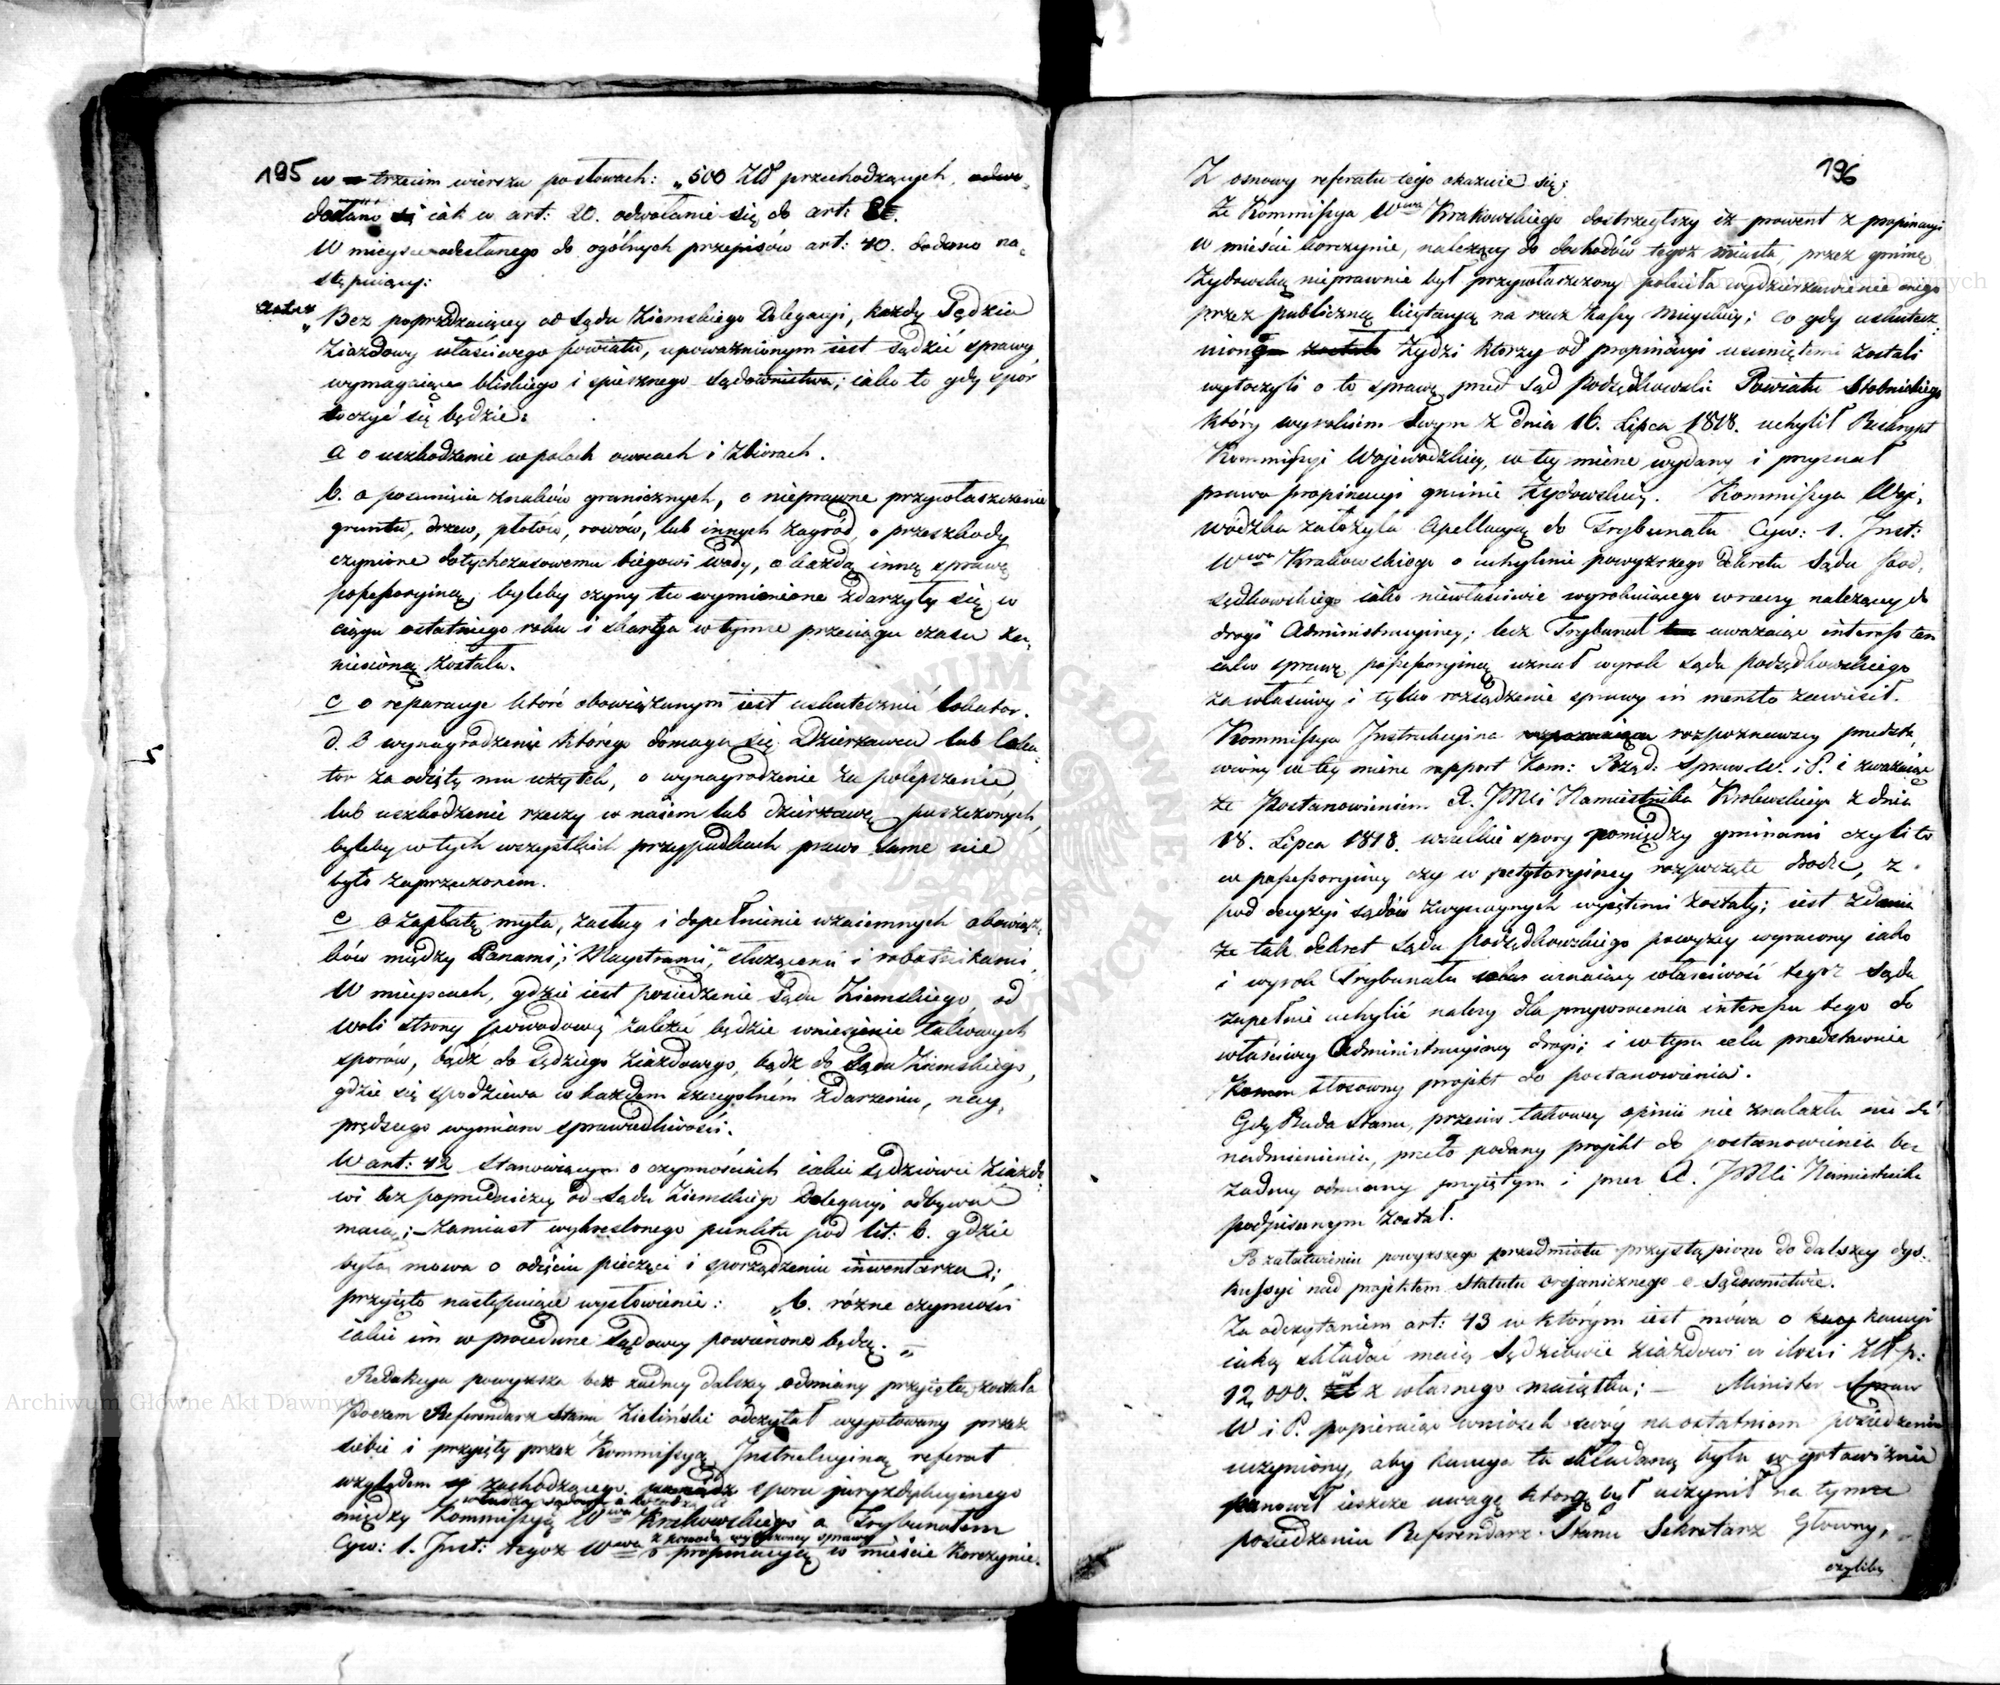 195
w trzecim wierszu po słowach: „500 Złł przechodzących,
dodano iak w art: 20. odwołanie się do art:
W mieysce odesłanego do ogólnych przepisów art: 40. dodano na-
stępuiący:
„Bez poprzedzaiącey od Sądu Ziemskiego Delegacyi, każdy Sędzia
Ziazdowy właściwego powiatu, upoważnionym iest sądzić sprawy
wymagaiące bliskiego i spiesznego sądownictwa; iako to gdy spor
toczyć się będzie:
a o uszkodzenie w polach owocach i zbiorach.
b. o posunięcie znaków granicznych, o nieprawne przywłaszczenie
gruntu, drzew, płotów, rowów, lub innych zagrod, o przeszkody
czynione dotychczasowemu biegowi wody, o każdą inną sprawę
possessoryiną, byleby czyny tu wymienione zdarzyły się w
ciągu ostatniego roku i skarga w tymże przeciągu czasu za-
niesioną została.
c o reparacye które obowiązanym iest uskutecznić lokator.
d. o wynagrodzenie którego domaga się Dzierzawca lub loka-
tor za odiętą mu użytek, o wynagrodzenie za polepszenie,
lub uszkodzenie rzeczy w naiem lub dzierzawę puszczonych,
byleby w tych wszystkich przypadkach prawo same nie
było zaprzeczonem.
e o zapłatę myta, zasług i dopełnienie wzaiemnych obowiąz-
ków między Panami, i Maystrami, służącemi i robotnikami.
W mieyscach, gdzie iest posiedzenie Sądu Ziemskiego, od
woli strony powodowey zależeć będzie wniesienie takowych
sporów, bądź do Sędziego Ziazdowego, bądź do Sądu Ziemskiego,
gdzie się spodziewa w każdem szczególném zdarzeniu, nay-
prędszego wymiaru sprawiedliwości.
W art: 42 stanowiącym o czynnościach iakie Sędziowie Ziazdo-
wi bez poprzedniczey od Sądu Ziemskiego Delegacyi odbywać
maią; – zamiast wykreslonego punktu pod lit: b. gdzie
była mowa o odięciu pieczęci i sporządzeniu inwentarza;
przyięto następuiące wysłowienie: „b. różne czynności
iakie im w procedurze sądowey powierzone będą. „
Redakcya powyższa bez żadney dalszey odmiany przyięta została
Poczem Referendarz Stanu Zieliński odczytał wygotowany przez
siebie i przyięty przez Kommissyą Instrukcyiną referat
względem zachodzącego sporu juryzdykcyinego
między Kommissyą Wwa Krakowskiego a Trybunałem
z powodu wytoczoney sprawy
Cyw: 1. Inst: tegoż Wwa o propinacyą w mieście Korczynie.
196
Z osnowy referatu tego okazuie się:
Że Kommissya Wwa Krakowskiego dostrzegłszy iż prowent z propinacyi
w mieście Korczynie, należący do dochodów tegoż miasta, przez gminę
Żydowską nieprawnie był przywłaszczony poleciła wydzierzawienie onego
przez publiczną licytacyą na rzecz kassy mieyskiey; co gdy uskutecz-
niono Żydzi którzy od propinacyi usuniętemi zostali
wytoczyli o to sprawę przed Sąd Podsędkowski Powiatu Stobnickiego
który wyrokiem swym z dnia 16. Lipca 1818. uchylił Reskrypt
Kommissyi Wojewodzkiey, w tey mierze wydany i przyznał
prawo propinacyi gminie Żydowskiey. Kommissya Woje-
wodzka założyła apellacyą do Trybunału Cyw: 1. Inst:
Wwa Krakowskiego o uchylenie powyższego Dekretu Sądu Pod-
sędkowskiego iako niewłaściwie wyrokuiącego w rzeczy należącey do
drogi Administracyiney; lecz Trybunał uważaiąc interess ten
iako sprawę possessoryiną uznał wyrok Sądu podsędkowskiego
za właściwy i tylko rozsądzenie sprawy in merito zawiesił.
Kommissya Instrukcyina rozpoznawszy przedsta-
wiony w tey mierze rapport Kom: Rząd: Spraw W. i P. i zważaiąc
że Postanowieniem X. JMci Namiestnika Krolewskiego z dnia
18. Lipca 1818. wszelkie spory pomiędzy gminami czyli to
w possessoryiney czy w petytoryiney rozpoczęte drodze, z
pod decyzyi sądów zwyczaynych wyiętemi zostały; iest zdania
że tak dekret Sądu Podsędkowskiego powyżey wyrażony iako
i wyrok Trybunału uznaiący właściwość tegoż Sądu
zupełnie uchylić należy dla przywrócenia interessu tego do
właściwey Administracyiney drogi; i w tym celu przedstawia
stosowny projekt do postanowienia.
Gdy Rada Stanu, przeciw takowey opinii nie znalazła nic do
nadmienienia, przeto podany projekt do postanowienia bez
żadney odmiany przyiętym i przez X. JMci Namiestnika
podpisanym został.
Po załatwieniu powyższego przedmiotu przystąpiono do dalszey dys-
kussyi nad projektem Statutu organicznego o Sądownictwie.
Za odczytaniem art: 43 w którym iest mowa o kaucyi
iaką składać maią Sędziowie ziazdowi w ilości Złł p:
12,000. z własnego maiątku; – Minister Spraw
W i P. popieraiąc wniosek swóy na ostatniem posiedzeniu
uczyniony, aby kaucya ta składaną była w gotowiznie
ponowił ieszcze uwagę którą był uczynił na tymże
posiedzeniu Referendarz Stanu Sekretarz Główny,
czyliby
Archiwum Główne Akt Dawnych